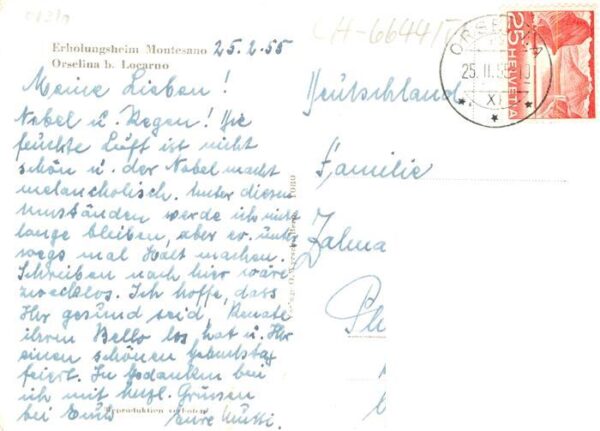 CH-6644/1
Erholungsheim Montesano 25.2.55
Orselina b. Locarno
Meine Lieben!
Nebel u. Regen! Die
feuchte Luft ist nicht
schön u. der Nebel macht
melancholisch. Unter diesen
Umständen werde ich nicht
lange bleiben, aber ev. unter
wegs mal Halt machen.
Schreiben nach hier wäre
zwecklos. Ich hoffe, dass
Ihr gesund seid, Renate
ihren Bello los hat u. Ihr
einen schönen Geburtstag
feiert. In Gedanken bei
ich mit herzl. Grüssen
bei Euch Eure Mutti.
Reproduktion verboten
Deutschland
Familie
Zalma
ORSELINA
25. II. 55
XI
25
HELVETIA